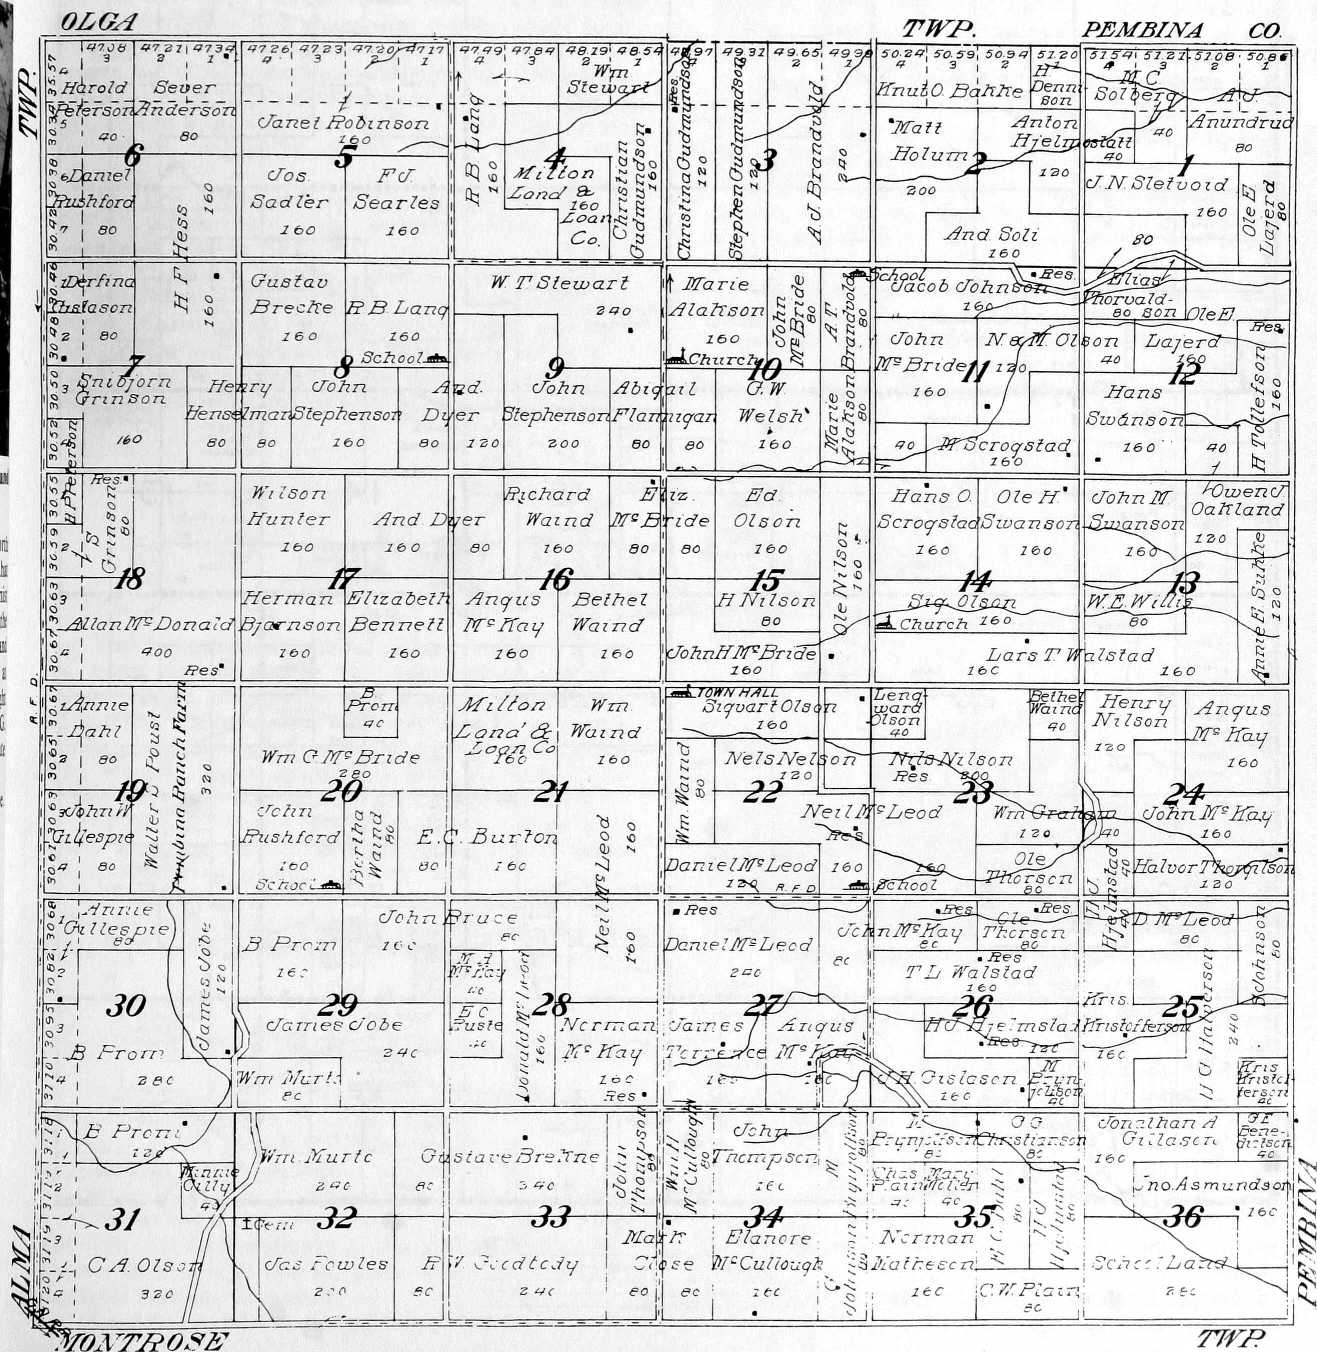 OLGA TWP. PEMBINA CO.
TWP.
47.08 47.21 47.34 47.26 47.23 47.20 47.17 47.49 47.84 48.19 48.54 49.31 49.65 49.99 50.24 50.59 50.94 51.20 51.54 51.21 51.08 50.86
4 3 2 1 4 3 2 1 4 3 2 1 4 3 2 1
Harold
Peterson
40
Sever
Anderson
80
6
Daniel
Rushford
80
H F Hess
160
160
Janet Robinson
160
5
Jos.
Sadler
160
F.J.
Searles
160
R B Lang
160
Wm
Stewart
4
Milton
Land &
160
Loan
Co.
Christian
Gudmundson
160
Res
Christina Gudmundson
120
Stephen Gudmundson
120
3
A J Brandvold
240
Knut O. Bakke
H
Denni-
son
Matt
Holum
200
Anton
Hjelmostatt
40
2
120
And Soli
160
M.C.
Solberg
40
A.J.
Anundrud
80
1
J.N. Sletvold
160
Ole E
Lajerd
80
80
Derfina
Gislason
80
7
Snibjorn
Grinson
160
Henry
Henselman
80 80
Gustav
Brecke
160
R.B. Lang
160
School
8
John
Stephenson
160
And.
Dyer
80 120
W. T. Stewart
240
9
John
Stephenson
200
Abigail
Flannigan
80 80
Marie
Alakson
160
Church
John
McBride
80
10
G.W.
Welsh
160
A T
Brandvold
80
Marie
Alakson
80
School
Jacob Johnson
160
Res.
John
McBride
160
N. & M. Olson
120 40
11
40
M Scrogstad
160
Elias
Thorvald-
80 son
Ole E
Lajerd
160
12
Hans
Swanson
160
40
Res.
H Tollefson
160
H.P. Peterson
Res.
S
Grinson
80
18
Allan McDonald
400
Res
Wilson
Hunter
160
And Dyer
160 80
17
Herman
Bjarnson
160
Elizabeth
Bennett
160
Richard
Waind
160
Eliz.
McBride
80 80
16
Angus
McKay
160
Bethel
Waind
160
Ed.
Olson
160
15
H Nilson
80
John H McBride
160
Ole Nilson
160
Hans O.
Scrogstad
160
Ole H
Swanson
160
14
Sig. Olson
160
Church
Lars T. Walstad
160 160
John M.
Swanson
160
Owen J
Oakland
120
13
W.E. Willis
80
Annie E. Suhke
120
R.F.D.
Annie
Dahl
80
19
John W
Gillespie
80
Walter J Poust
Pembina Ranch Farm
320
B
Prom
40
Wm G. McBride
280
20
John
Rushford
160
School
Bertha
Waind
80
Milton
Land &
Loan Co
160
Wm.
Waind
160
21
E.C. Burton
80 160
Neil McLeod
160
160
TOWN HALL
Sigvart Olson
160
Wm Waind
80
Nels Nelson
120
22
Neil McLeod
Res
160 160
Daniel McLeod
120
R.F.D.
School
Leng-
ward
Olson
40
Bethel
Waind
40
Nils Nilson
Res
23
Wm Graham
120 40
Ole
Thorson
80
Henry
Nilson
120
Angus
McKay
160
24
John McKay
160
H J
Hjelmstad
40
40
Halvor Thorgilson
120
Annie
Gillespie
80
30
B Prom
280
James Jobe
120
B Prom
160
29
James Jobe
240
Wm Murta
80
John Bruce
160 80
M A
McKay
40
E C
40
Donald McLeod
160
28
Norman
McKay
160
Res
Res
Daniel McLeod
240
27
James
Torrence
160
Angus
McKay
160
John McKay
80 80
Res
Ole
Thorson
80
Res
Res
T L Walstad
160
26
H J Hjelmstad
Res
120
J.H. Gislason
160
M
Bryn-
jolfson
40
D McLeod
80
Kris
Kristofferson
160
25
H G Halverson
240
S Johnson
80
Kris
Kristof-
ferson
40
B Prom
120
Minnie
Gilly
40
31
C.A. Olson
320
Wm. Murta
240
32
Cem
Jas Fowles
Gustave Brekne
80 240
33
R W Goodtody
80 240
John
Thompson
80
Mark
Close
80 80
Wm H
McCullough
80
John
Thompson
160
34
Elanore
McCullough
160
M
Brynjolfson
80
G G
Christianson
80
Chas
Plain
40
Mary
Miller
40
35
Norman
Matheson
160
E C Buhl
80
H J
Hjelmstad
80
C.W. Plain
80
Jonathan A
Gillason
160
G E
Bene-
dictson
40
Jno. Asmundson
160
36
School Land
280
ALMA
PEMBINA
MONTROSE TWP.